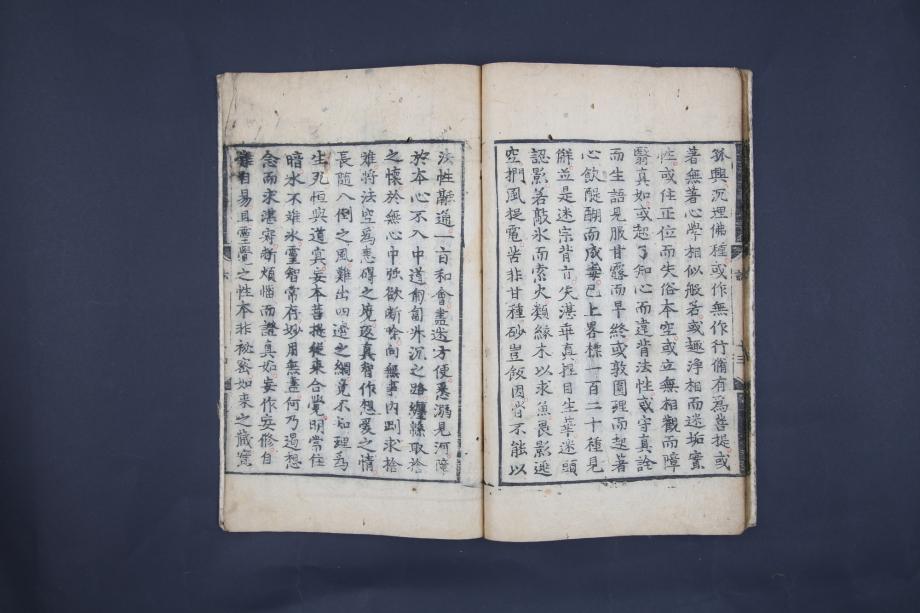 孤興沉埋佛種或作無作行脩有爲菩提或
著無著心學相似般若或趣淨相而迷垢實
性或住正位而失俗本空或立無相觀而障
翳真如或起了知心而違背法性或守真詮
而生語見服甘露而早終或敦圓理而起著
心飮醍醐而成毒已上略標一百二十種見
解並是迷宗背㫖失湛乖真捏目生華迷頭
認影若敲氷而索火類緣木以求魚畏影逃
空捫風捉電苦非甘種砂豈飯因皆不能以
法性融通一㫖和會盡迷方便悉溺見河障
於本心不入中道匍匐升沉之路纏緜取捨
之懷於無心中強欲斷除向無事內剛求捨
離將法空爲患礙之境返真智作想愛之情
長隨八倒之風難出四邊之網竟不知理爲
生死恒與道冥妄本菩提從來合覺明常住
暗水不離氷靈智常存妙用無盡何乃遏想
念而求湛寂斷煩惱而證真如妄作妄修自
難自易且靈覺之性本非祕密如來之藏實